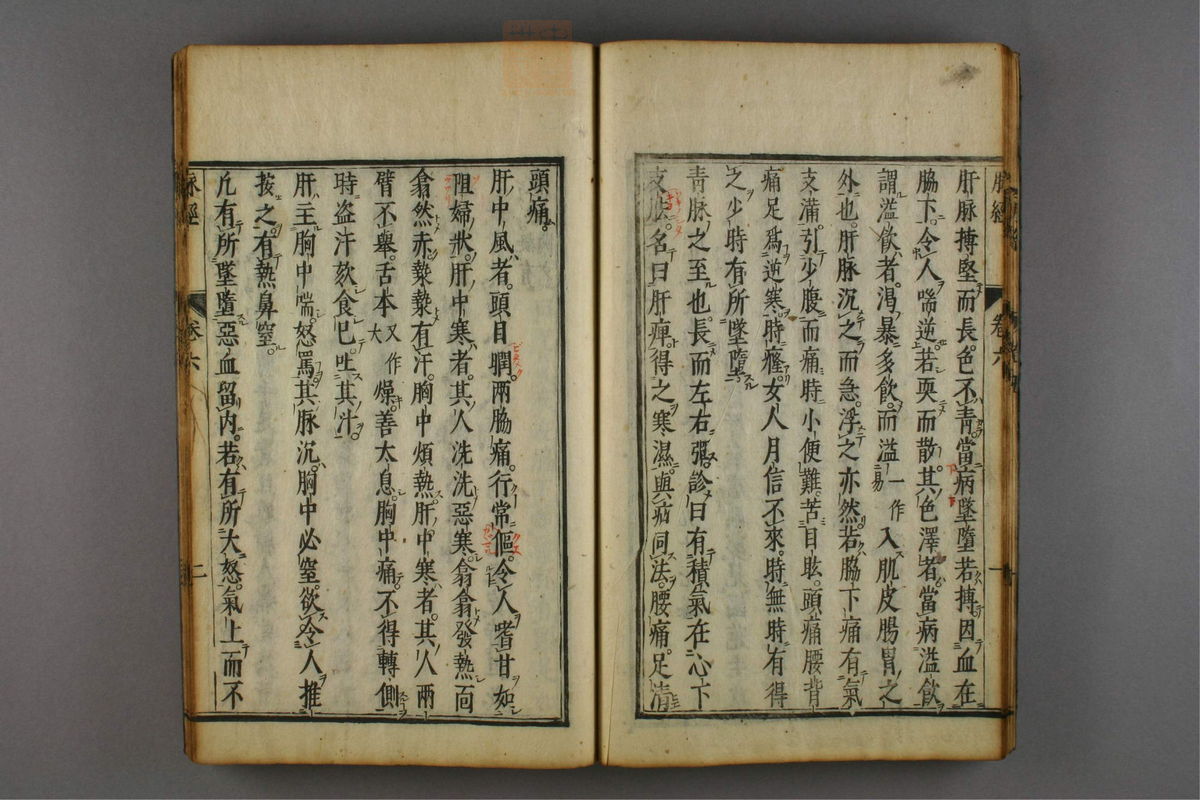 脉經
卷六
一
肝脉搏堅而長色不青當病墜墮若搏因血在
脇下令人喘逆若耎而散其色澤者當病溢飲
謂溢飲者渴暴多飲而溢一作易入肌皮腸胃之
外也肝脉沉之而急浮之亦然若脇下痛有氣
支滿引少腹而痛時小便難苦目眩頭痛腰背
痛足爲逆寒時癃女人月信不來時無時有得
之少時有所墜墮
青脉之至也長而左右彈診曰有積氣在心下
支胠名曰肝痺得之寒濕與疝同法腰痛足清
頭痛
肝中風者頭目瞤兩脇痛行常傴令人嗜甘如
阻婦狀肝中寒者其人洗洗惡寒翕翕發熱面
翕然赤漐漐有汗胸中煩熱肝中寒者其人兩
臂不舉舌本又作大燥善太息胸中痛不得轉側
時盗汗欬食已吐其汁
肝主胸中喘怒罵其脉沉胸中必窒欲令人推
按之有熱鼻窒
凡有所墜墮惡血留内若有所大怒氣上而不
脉經
卷六
二